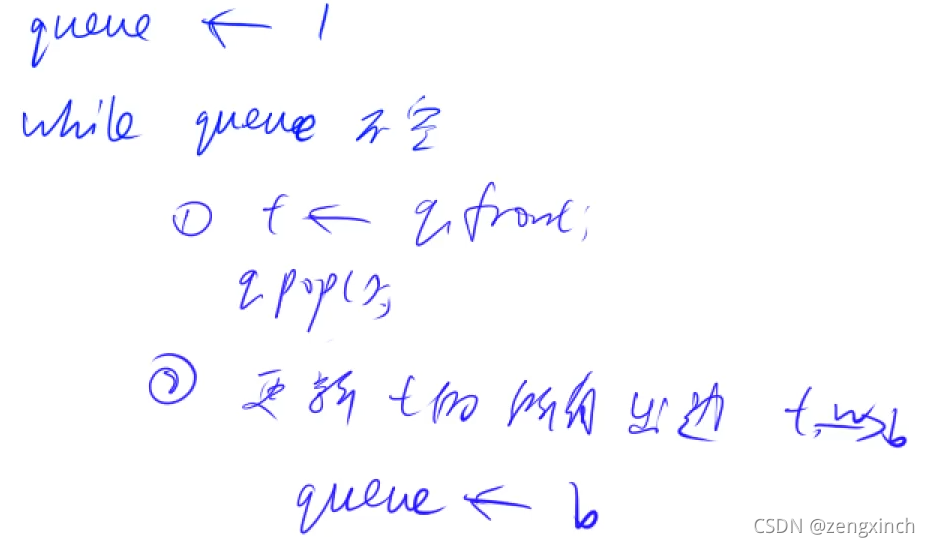 queue ← 1
while queue 不空
① t ← q.front;
q.pop();
② 更新 t的 所有 出边 t w→ b
queue ← b
CSDN @zengxinch